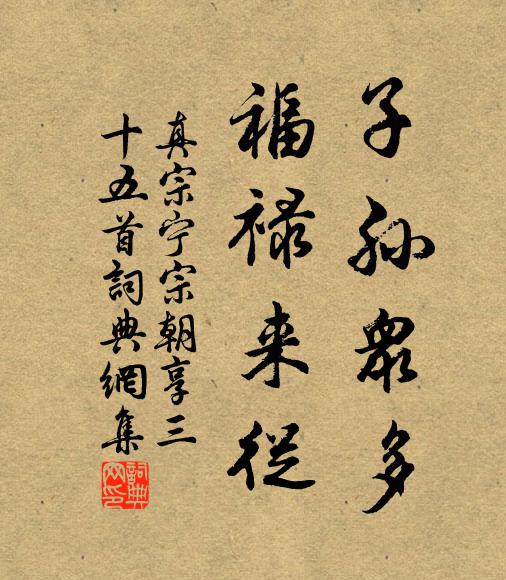 子孙眾多
福禄来從
真宗宁宗朝享三
十五首詞典網集
詞典
网印